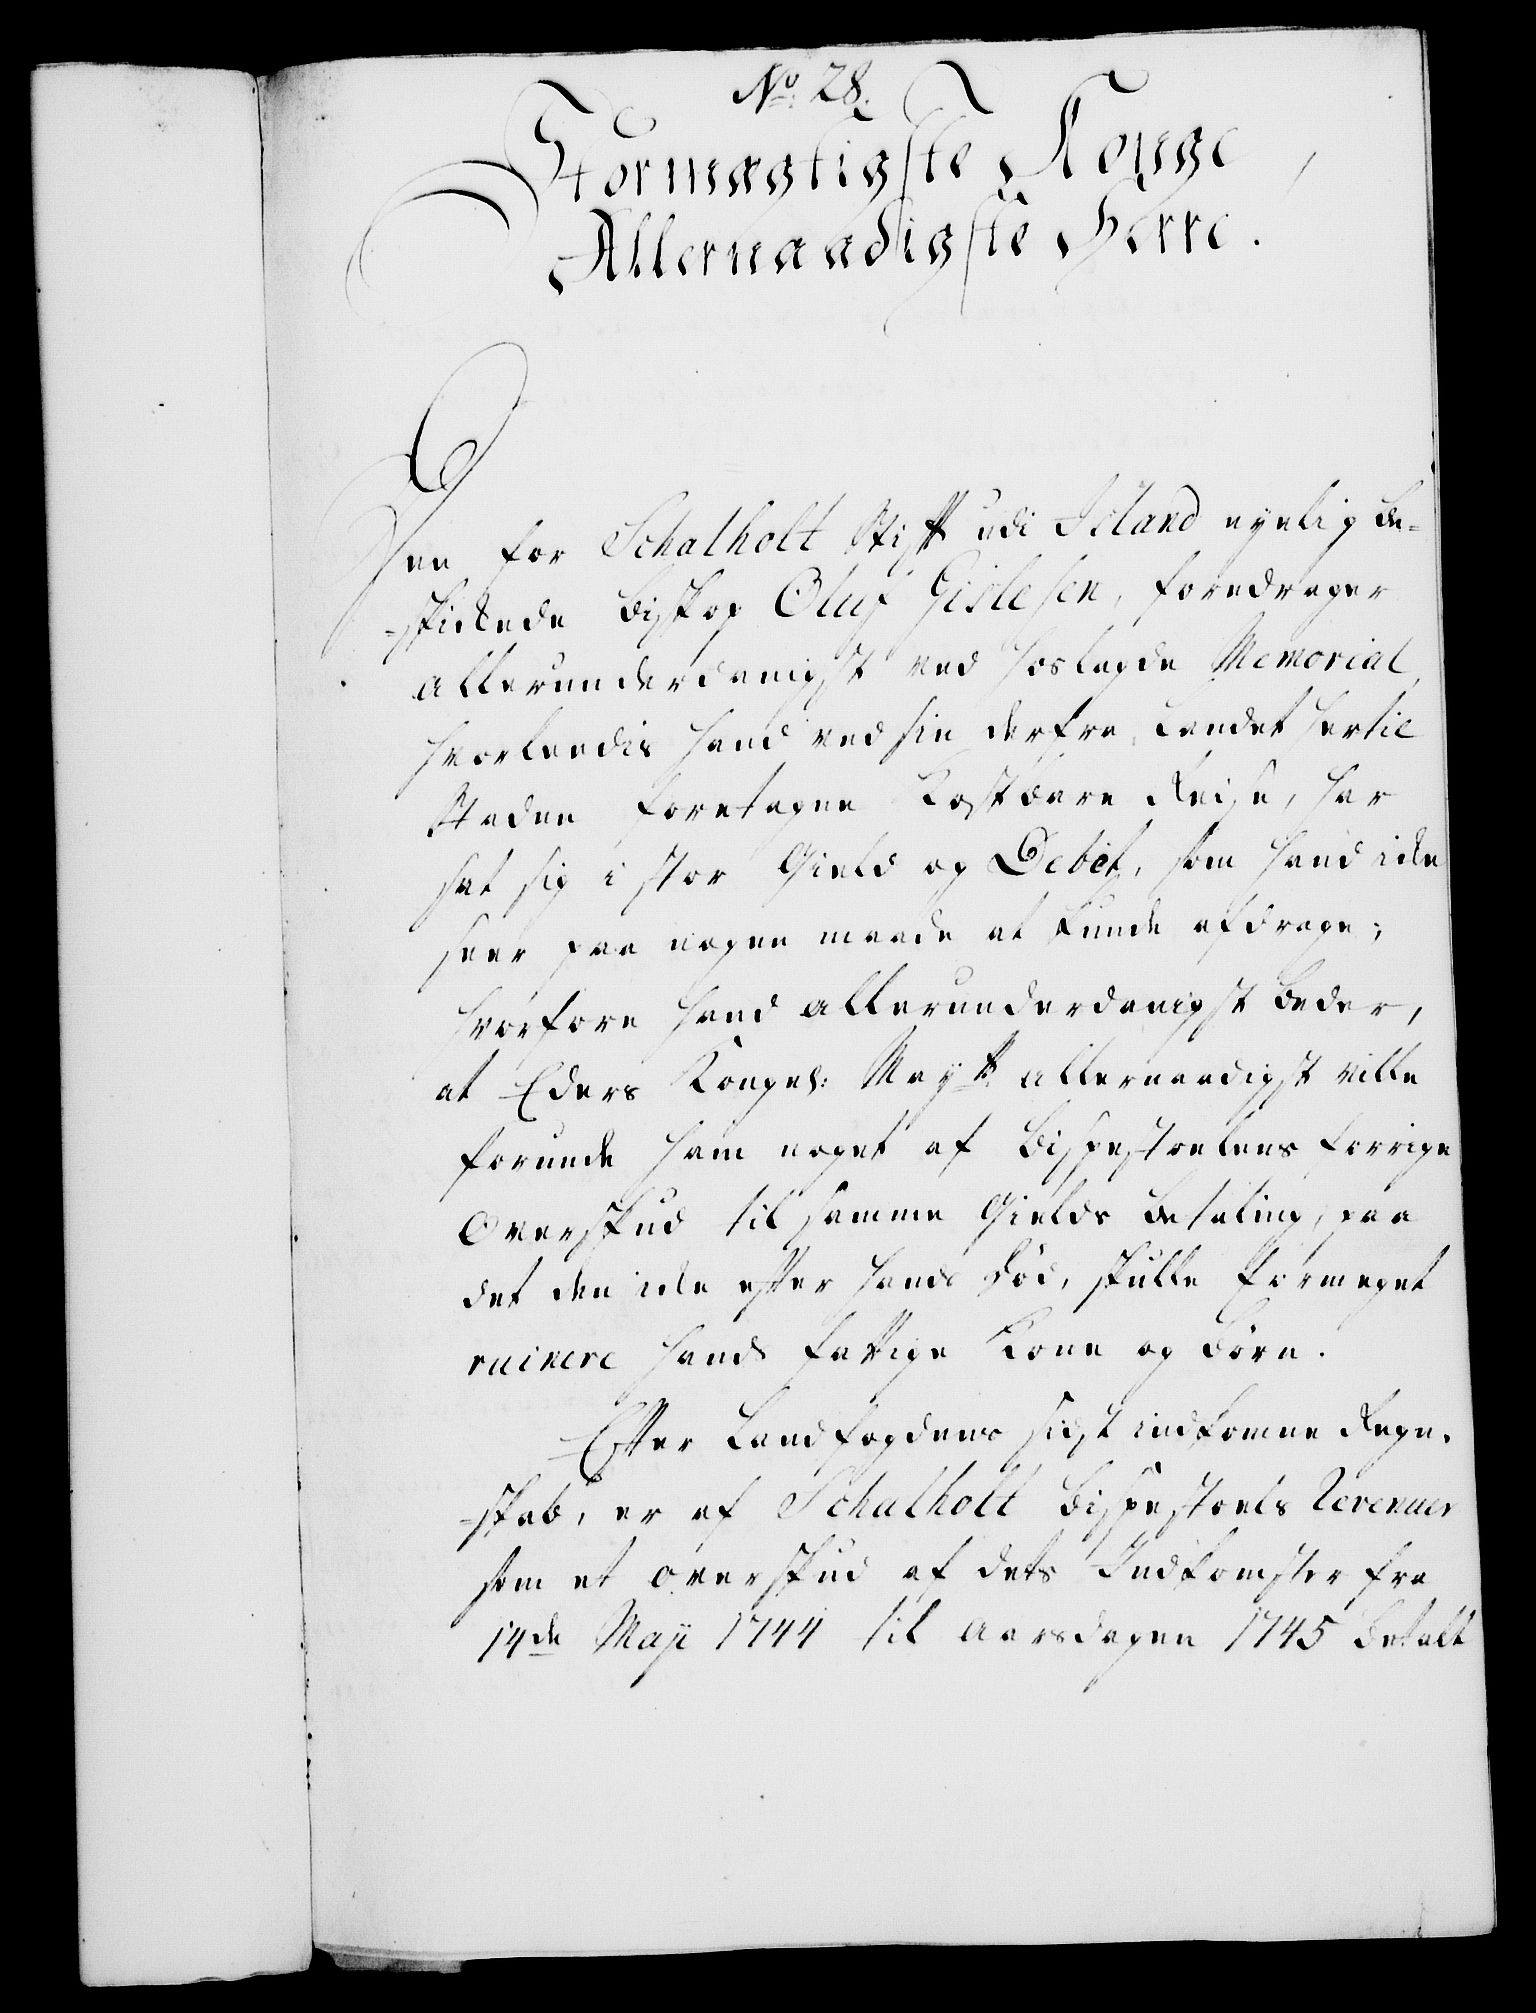 No 28.
Stormægtigste Konge,
Allernaadigste Herre.
Den for Schalholt Stift udi Island nyelig be-
-skikkede Biskop Oluf Gislesen, foredrager
allerunderdanigst ved hoslagde Memorial,
hvorledis hand ved sin derfra Landet hertil
Staden foretagne kostbare Reise, har
sat sig i stor Gield og Debet, som hand icke
seer paa nogen maade at kunde afdrage;
hvorfore hand allerunderdanigst beder,
at Eders Kongel: Mayt. allernaadigst ville
forunde ham noget af Bispestoelens forrige
Overskud til samme Gields betaling, paa
det den icke efter hands Død, skulle formeget
ruinere hands fattige Kone og Børn.
Efter Landfogdens sidst indkomne Regn-
-skab, er af Schalholt Bispestoels Revenuer
som et overskud af dets Indkomster fra
14de Maji 1744 til Aarsdagen 1745 betalt